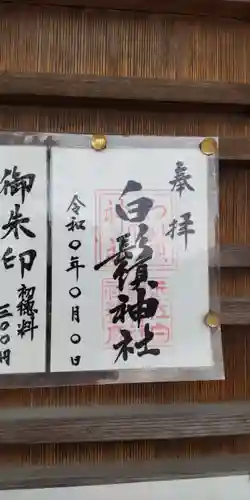 奉拝
白鬚神社
令和〇年〇月〇日
御朱印
初穂料
三〇〇円